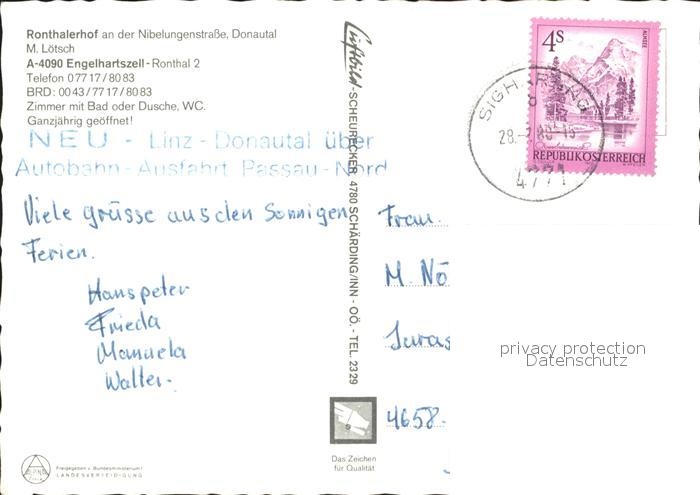 Ronthalerhof an der Nibelungenstraße, Donautal
M. Lötsch
A-4090 Engelhartszell - Ronthal 2
Telefon 0 77 17 / 80 83
BRD: 00 43 / 77 17 / 80 83
Zimmer mit Bad oder Dusche, WC.
Ganzjährig geöffnet!
NEU - Linz - Donautal über
Autobahn - Ausfahrt Passau - Nord
Viele grüsse aus den Sonnigen
Ferien.
Hanspeter
Frieda
Manuela
Walter.
Freigegeben v. Bundesministerium f.
LANDESVERTEIDIGUNG
Luftbild-SCHEURECKER, 4780 SCHÄRDING/INN - OÖ. - TEL. 2329
Das Zeichen
für Qualität
4S
ALMSEE
REPUBLIK ÖSTERREICH
4771
Frau.
M. Nö
Juras
4658.
privacy protection
Datenschutz